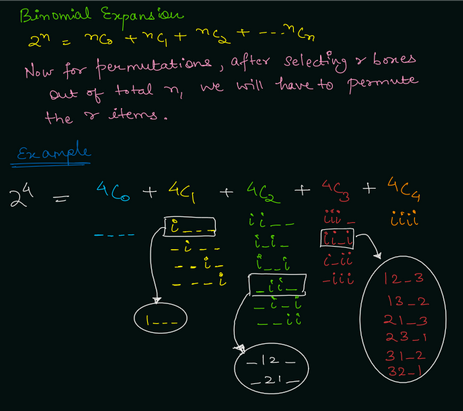 Binomial Expansion
2ⁿ = nC₀ + nC₁ + nC₂ + ---- ⁿCₙ
Now for permutations, after selecting r boxes
out of total n, we will have to permute
the r items.
Example
2⁴ = 4C₀ + 4C₁ + 4C₂ + 4C₃ + 4C₄
_ _ _ _
i _ _ _
_ i _ _
_ _ i _
_ _ _ i
1 _ _ _
i i _ _
i _ i _
i _ _ i
_ i i _
_ i _ i
_ _ i i
_ 1 2 _
_ 2 1 _
i i i _
i i _ i
i _ i i
_ i i i
1 2 _ 3
1 3 _ 2
2 1 _ 3
2 3 _ 1
3 1 _ 2
3 2 _ 1
i i i i